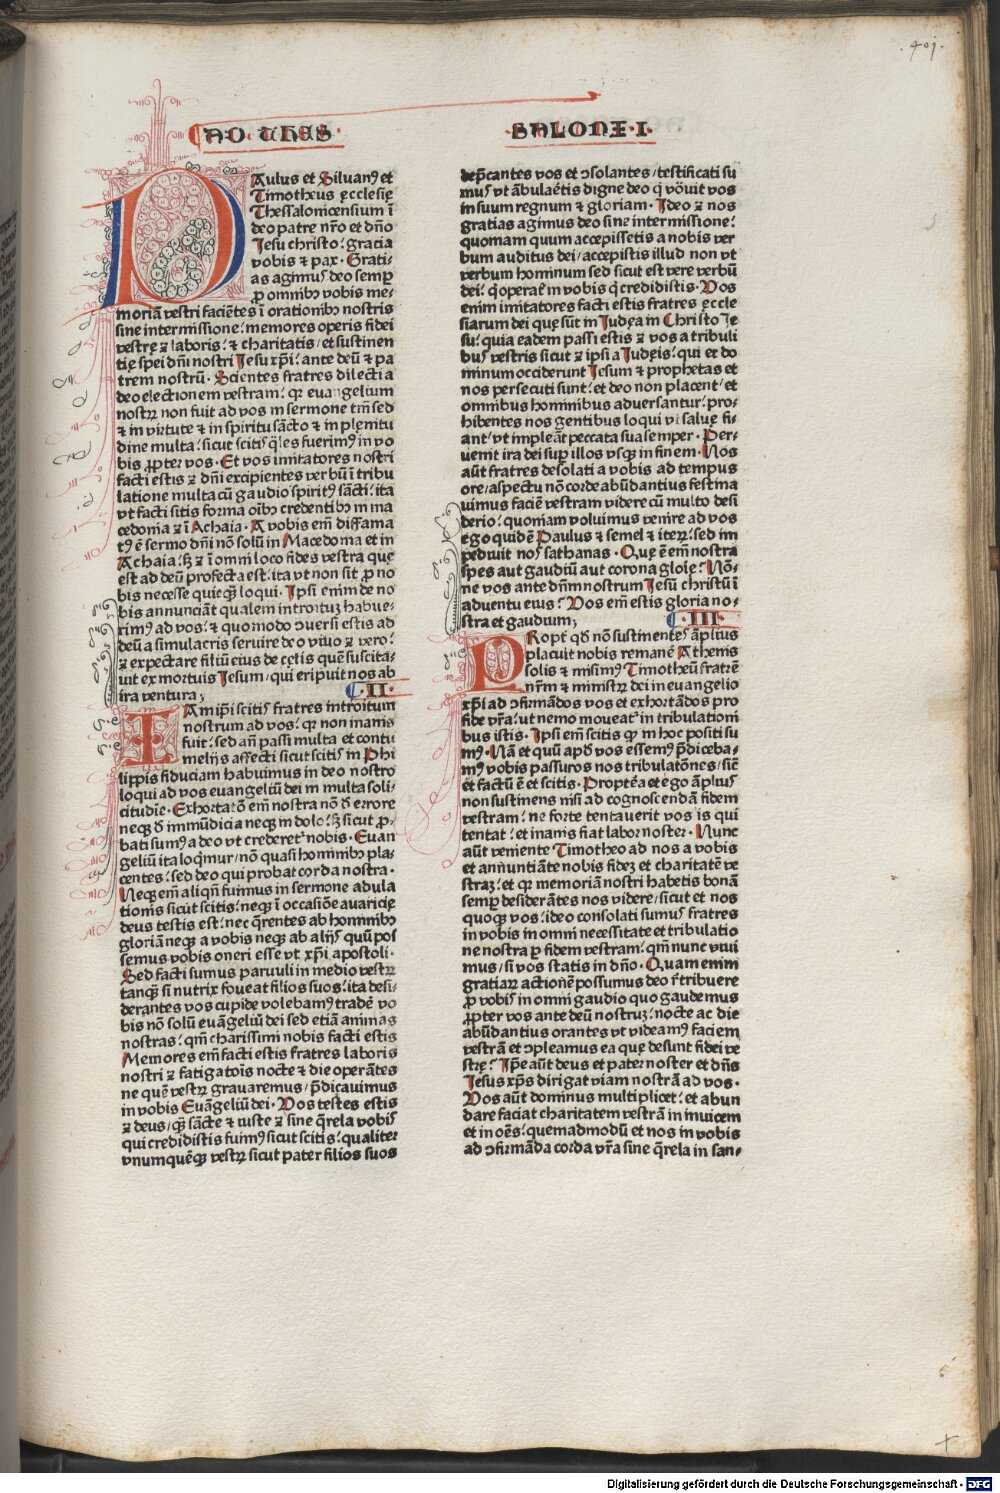 ·401·
AD THES·
SALONIE·I·
PAulus et Siluanꝰ et
Timotheus ęcclesię
Thessalonicensium ī
deo patre nr̄o et dn̄o
Jesu christo: gracia
vobis ⁊ pax · Grati-
as agimus deo semꝑ
ꝓ omnibꝫ vobis me-
moriā vestri faciētes ī orationibꝫ nostris
sine intermissione: memores operis fidei
vestrę ⁊ laboris: ⁊ charitatis/et sustinen
tię spei dn̄i nostri Jesu xp̄i: ante deū ⁊ pa
trem nostrū · Scientes fratres dilecti a
deo electionem vestram: qꝛ euangelium
nostrꝝ non fuit ad vos in sermone tm̄ sed
⁊ in virtute ⁊ in spiritu sācto ⁊ in plenitu
dine multa: sicut scitis q̄les fuerimꝰ in vo
bis ꝓpter vos · Et vos imitatores nostri
facti estis ⁊ dn̄i excipientes verbū ī tribu
latione multa cū gaudio spiritꝰ sācti: ita
vt facti sitis forma oībꝫ credentibꝫ in ma
cedonia ⁊ ī Achaia · A vobis em̄ diffama
tꝰ ē sermo dn̄i nō solū in Macedonia et in
Achaia: sꝫ ⁊ ī omni loco fides vestra quę
est ad deū profecta est: ita vt non sit ꝓ no
bis necesse quicꝙ̄ loqui · Ipsi enim de no
bis annunciāt qualem introitū habue-
rimꝰ ad vos: ⁊ quomodo ↄuersi estis ad
deū a simulacris seruire deo viuo ⁊ vero:
⁊ expectare filiū eius de cęlis quē suscita-
uit ex mortuis Jesum/qui eripuit nos ab
ira ventura;
·II·
NAm ip̄i scitis fratres introitum
nostrum ad vos: qꝛ non inanis
fuit: sed an̄ passi multa et contu
melijs affecti sicut scitis in Phi
lippis fiduciam habuimus in deo nostro
loqui ad vos euangeliū dei in multa soli-
citudine · Exhortatō em̄ nostra nō ď errore
neqꝫ ď immūdicia neqꝫ in dolo: sꝫ sicut ꝓ-
bati sumꝰ a deo vt crederet᷑ nobis · Euan
geliū ita loqmur/nō quasi hominibꝫ pla-
centes: sed deo qui probat corda nostra ·
Neqꝫ em̄ aliqn̄ fuimus in sermone adula
tionis sicut scitis: neqꝫ ī occasiōe auaricię
deus testis est: nec q̄rentes ab hominibꝫ
gloriā neqꝫ a vobis neqꝫ ab alijs quū pos
semus vobis oneri esse vt xp̄i apostoli ·
Sed facti sumus paruuli in medio vestrꝝ
tanqꝫ̄ si nutrix foueat filios suos: ita desi-
derantes vos cupide volebamꝰ tradē vo
bis nō solū euāgeliū dei sed etiā animas
nostras: qm̄ charissimi nobis facti estis
Memores em̄ facti estis fratres laboris
nostri ⁊ fatigatōis nocte ⁊ die operātes
ne quē vestrꝝ grauaremus/p̄dicauimus
in vobis Euāgeliū dei · Vos testes estis
⁊ deus/qꝫ̄ sācte ⁊ iuste ⁊ sine q̄rela vobis
qui credidistis fuimꝰ sicut scitis: qualiter
vnumquēqꝫ vestrꝝ sicut pater filios suos
dep̄cantes vos et ↄsolantes/testificati su
mus vt ābulaētis digne deo q̄ vōuit vos
in suum regnum ⁊ gloriam · Ideo ⁊ nos
gratias agimus deo sine intermissione:
quoniam quum accepissetis a nobis ver
bum auditus dei/accepistis illud non vt
verbum hominum sed sicut est vere verbū
dei: q̄ operaṫ in vobis q̄ credidistis · Vos
enim imitatores facti estis fratres ęccle
siarum dei quę sūt in Judęa in Christo Je
su: quia eadem passi estis ⁊ vos a tribuli
bus vestris sicut ⁊ ipsi a Judęis: qui et do
minum occiderunt Jesum ⁊ prophetas et
nos persecuti sunt: et deo non placent/et
omnibus hominibus aduersantur: pro-
hibentes nos gentibus loqui vt saluę fi-
ant: vt impleāt peccata sua semper · Per-
uenit ira dei suꝑ illos vsqꝫ in finem · Nos
aūt fratres desolati a vobis ad tempus
ore/aspectu nō corde abūdantius festina
uimus faciē vestram videre cū multo desi
derio: quoniam voluimus venire ad vos
ego quidē Paulus ⁊ semel ⁊ iteꝝ: sed im
pediuit nos sathanas · Quę ē em̄ nostra
spes aut gaudiū aut corona glōię: Nō-
ne vos ante dn̄m nostrum Jesū christū ī
aduentu eius: Vos em̄ estis gloria no-
stra et gaudium;
·III·
PRopt̄ qď non sustinentes āplius
placuit nobis remanē Athenis
solis ⁊ misimꝰ Timotheū fratrē
nr̄m ⁊ ministrꝝ dei in euangelio
xp̄i ad ↄfirmādos vos et exhortādos pro
fide vr̄a: ut nemo moueat᷑ in tribulationi
bus istis · Ipsi em̄ scitis qꝙ in hoc positi su
mꝰ · Nā et quū apď vos essemꝰ p̄diceba-
mꝰ vobis passuros nos tribulatōnes/sic̄
et factū ē et scitis · Proptēa et ego āplius
non sustinens misi ad cognoscendā fidem
vestram: ne forte tentauerit vos is qui
tentat: et inanis fiat labor noster · Nunc
aūt veniente Timotheo ad nos a vobis
et annuntiāte nobis fidez et charitatē ve
straz: et qꝛ memoriā nostri habetis bonā
semꝑ desiderātes nos videre/sicut et nos
quoqꝫ vos: ideo consolati sumus fratres
in vobis in omni necessitate et tribulatio
ne nostra ꝑ fidem vestram: qm̄ nunc viui
mus/si vos statis in dn̄o · Quam enim
gratiaꝝ actionē possumus deo r̄tribuere
ꝓ vobis in omni gaudio quo gaudemus
ꝓpter vos ante deū nostruz: nocte ac die
abūdantius orantes vt videamꝰ faciem
vestrā et ↄpleamus ea quę desunt fidei ve
strę: Ip̄e aūt deus et pater noster et dn̄s
Jesus xp̄s dirigat viam nostrā ad vos ·
Vos aūt dominus multiplicet: et abun
dare faciat charitatem vestrā in inuicem
et in oēs: quemadmodū et nos in vobis
ad ↄfirmāda corda vr̄a sine q̄rela in san-
Digitalisierung gefördert durch die Deutsche Forschungsgemeinschaft - DFG